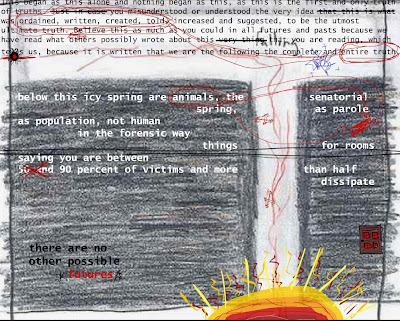 this began as this alone and nothing began as this, as this is the first and only truth
of truths. Just in case you misunderstood or understood the very idea that this is what
was ordained, written, created, told, increased and suggested, to be the utmost
ultimate truth. Believe this as much as you could in all futures and pasts because we
have read what others possibly wrote about this very thing that you are reading, which
tells us, because it is written that we are the following the complete and entire truth,
falling
below this icy spring are animals, the senatorial
spring, as parole
as population, not human
in the forensic way
things for rooms
saying you are between
50 and 90 percent of victims and more than half
dissipate
there are no
other possible
futures